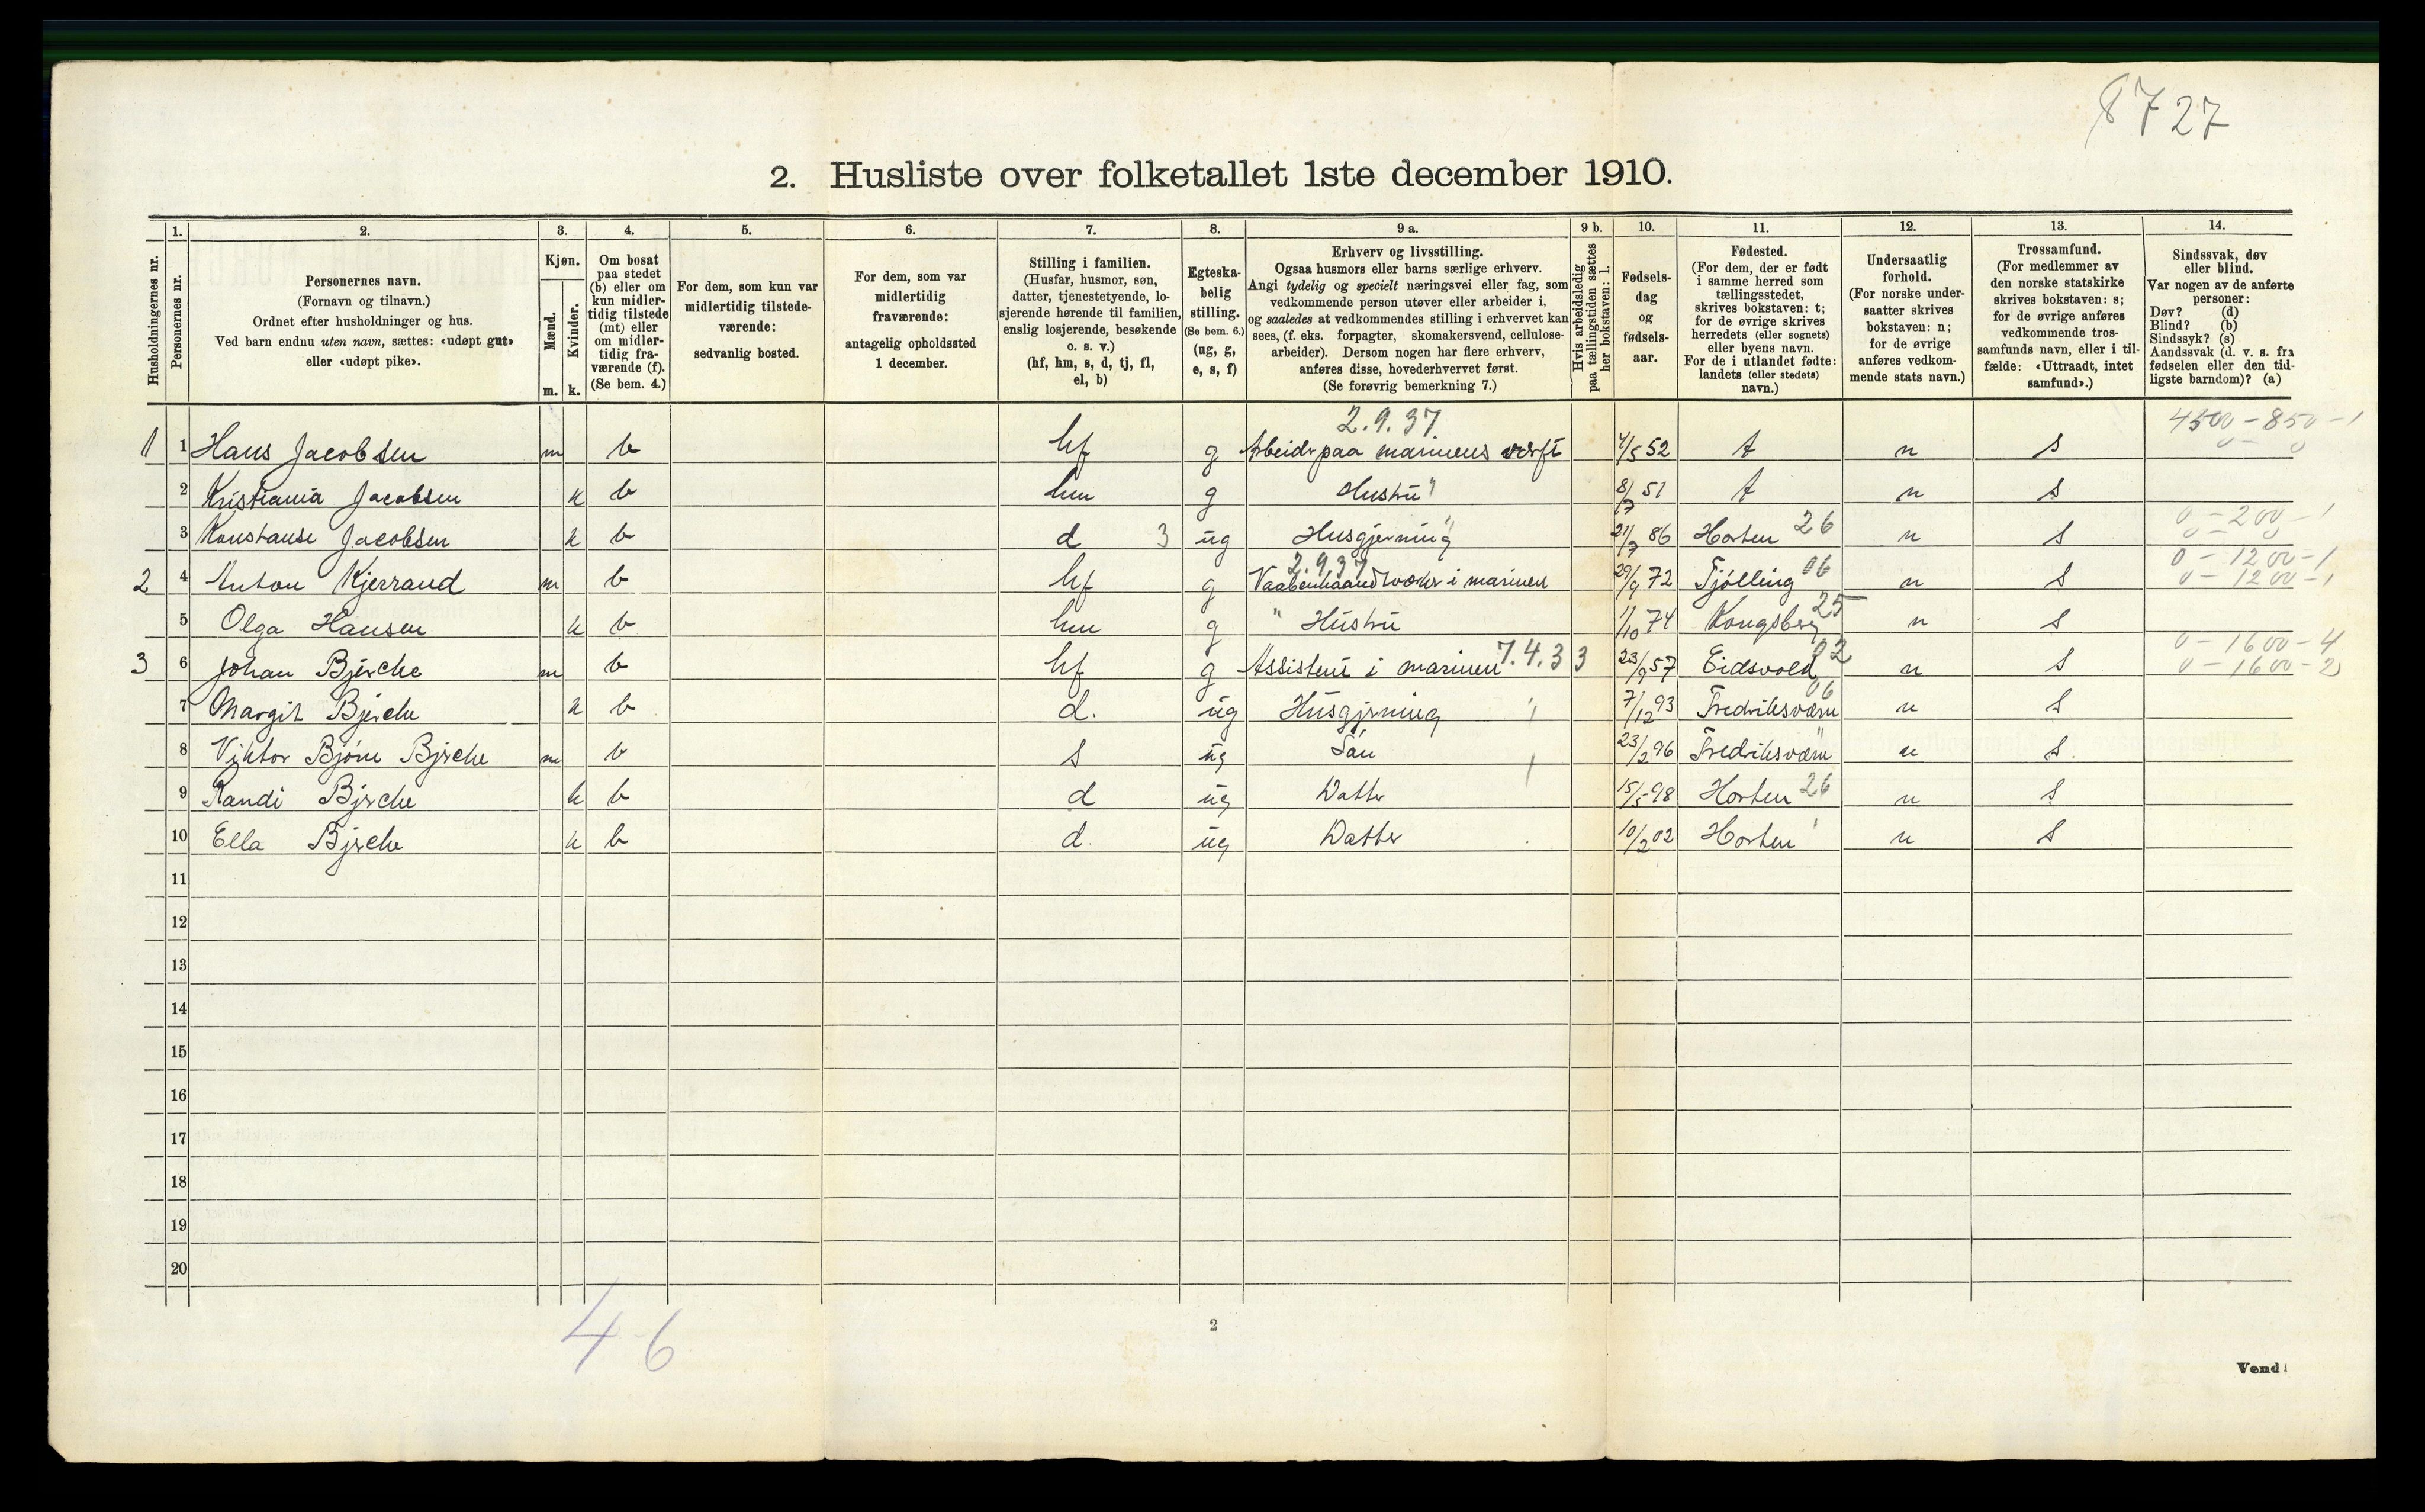 8727
2. Husliste over folketallet 1ste december 1910.
Husholdningernes nr.
1. Personernes nr.
2. Personernes navn.
(Fornavn og tilnavn.)
Ordnet efter husholdninger og hus.
Ved barn endnu uten navn, sættes: «udøpt gut»
eller «udøpt pike».
3. Kjøn.
Mænd. m.
Kvinder. k.
4. Om bosat
paa stedet
(b) eller om
kun midler-
tidig tilstede
(mt) eller
om midler-
tidig fra-
værende (f).
(Se bem. 4.)
5. For dem, som kun var
midlertidig tilstede-
værende:
sedvanlig bosted.
6. For dem, som var
midlertidig
fraværende:
antagelig opholdssted
1 december.
7. Stilling i familien.
(Husfar, husmor, søn,
datter, tjenestetyende, lo-
sjerende hørende til familien,
enslig losjerende, besøkende
o. s. v.)
(hf, hm, s, d, tj, fl,
el, b)
8. Egteska-
belig
stilling.
(Se bem. 6.)
(ug, g,
e, s, f)
9 a. Erhverv og livsstilling.
Ogsaa husmors eller barns særlige erhverv.
Angi tydelig og specielt næringsvei eller fag, som
vedkommende person utøver eller arbeider i,
og saaledes at vedkommendes stilling i erhvervet kan
sees, (f. eks. forpagter, skomakersvend, cellulose-
arbeider). Dersom nogen har flere erhverv,
anføres disse, hovederhvervet først.
(Se forøvrig bemerkning 7.)
9 b. Hvis arbeidsledig
paa tællingstiden sættes
her bokstaven: l.
10. Fødsels-
dag
og
fødsels-
aar.
11. Fødested.
(For dem, der er født
i samme herred som
tællingsstedet,
skrives bokstaven: t;
for de øvrige skrives
herredets (eller sognets)
eller byens navn.
For de i utlandet fødte:
landets (eller stedets)
navn.)
12. Undersaatlig
forhold.
(For norske under-
saatter skrives
bokstaven: n;
for de øvrige
anføres vedkom-
mende stats navn.)
13. Trossamfund.
(For medlemmer av
den norske statskirke
skrives bokstaven: s;
for de øvrige anføres
vedkommende tros-
samfunds navn, eller i til-
fælde: «Uttraadt, intet
samfund».)
14. Sindssvak, døv
eller blind.
Var nogen av de anførte
personer:
Døv? (d)
Blind? (b)
Sindssyk? (s)
Aandssvak (d. v. s. fra
fødselen eller den tid-
ligste barndom)? (a)
2.9.37 4500-850-1
1 1 Hans Jacobsen m b hf g Arbeidr paa marinens værft 4/5 52 t n s 0 - 0
2 Kristiania Jacobsen k b hm g Hustru " 8/7 51 t n s
0-200-1
3 Konstanse Jacobsen k b d 3 ug Husgjerning " 21/7 86 Horten 26 n s 0 - 0
2.9.37 0-1200-1
2 4 Anton Kjerrand m b hf g Vaabenhaandverker i marinen 29/9 72 Tjølling 06 n s 0-1200-1
5 Olga Hansen k b hm g " Hustru 1/10 74 Kongsberg 25 n s
0-1600-4
3 6 Johan Bjerche m b hf g Assistent i marinen 7.4.33 23/9 57 Eidsvold 02 n s 0-1600-2
06
7 Margit Bjerche k b d. ug Husgjerning " 7/12 93 Fredriksværn n s
8 Viktor Bjørn Bjrche m b s ug Søn 23/2 96 Fredriksværn " n s.
9 Randi Bjrche k b d ug Datter 15/5-98 Horten 26 n s
10 Ella Bjrche k b d. ug Datter 10/2 02 Horten n s
11
12
13
14
15
16
17
18
19
20
4-6
2
Vend!